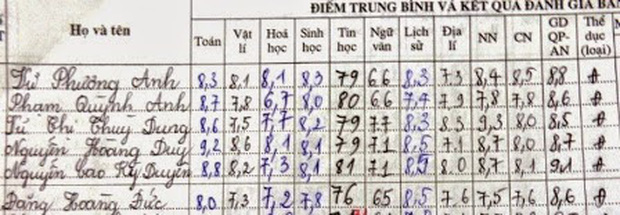 ĐIỂM TRUNG BÌNH VÀ KẾT QUẢ ĐÁNH GIÁ
Họ và tên Toán Vật lí Hoá học Sinh học Tin học Ngữ văn Lịch sử Địa lí NN CN GD QP-AN Thể dục (loại)
Từ Phương Anh 8,3 8,1 8,1 8,3 79 66 8,3 7.3 8,4 8,5 8,8 Đ
Phạm Quỳnh Anh 8,7 7,8 6,7 8,0 80 6.6 7,4 7.9 7,8 7,8 8,6 Đ
Từ Thị Thuỳ Dung 8,6 7,5 7,7 8,2 79 7.7 8,3 8.3 9,3 8,0 8,5 Đ
Nguyễn Hoàng Duy 9,2 8,6 8,1 8,1 79 7.1 8,5 7.1 8,7 8,0 8,7 Đ
Nguyễn Cao Kỳ Duyên 8,8 8,2 7,3 8,1 81 7.1 8,5 8.0 8,7 8,1 9,1 Đ
Đặng Hoàng Đức 8,0 7,3 7,2 7,8 76 65 8,5 7.6 7,5 7,6 8,6 Đ